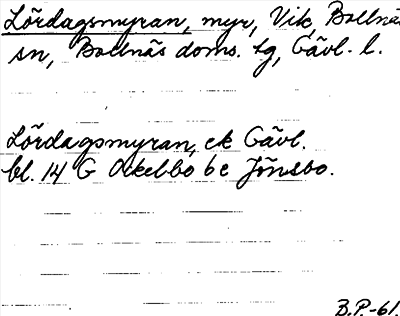 Lördagsmyran, myr, Vik, Bollnäs
sn, Bollnäs doms. tg, Gävl. l.
Lördagsmyran, ek Gävl.
bl. 14 G Ockelbo be Jönsbo.
B.P.-61.